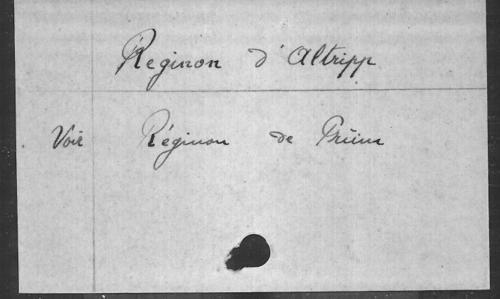 Reginon d'Altripp
Voir Réginon de Prüm